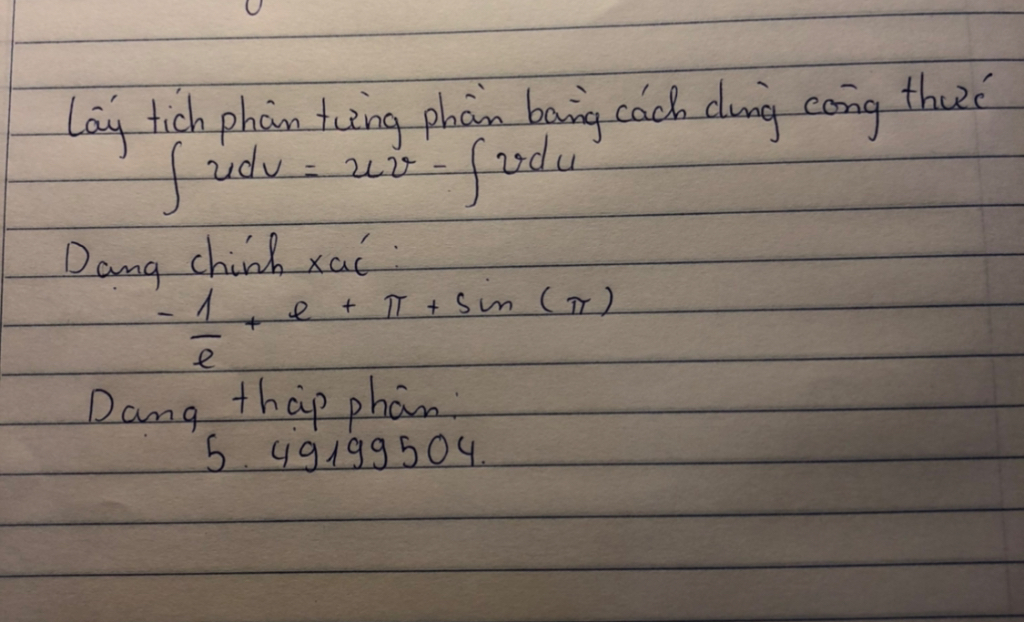 Lấy tích phân từng phần bằng cách dùng công thức
∫ udv = uv - ∫ vdu
Dạng chính xác:
- 1/e + e + π + sin (π)
Dạng thập phân:
5.49199504.